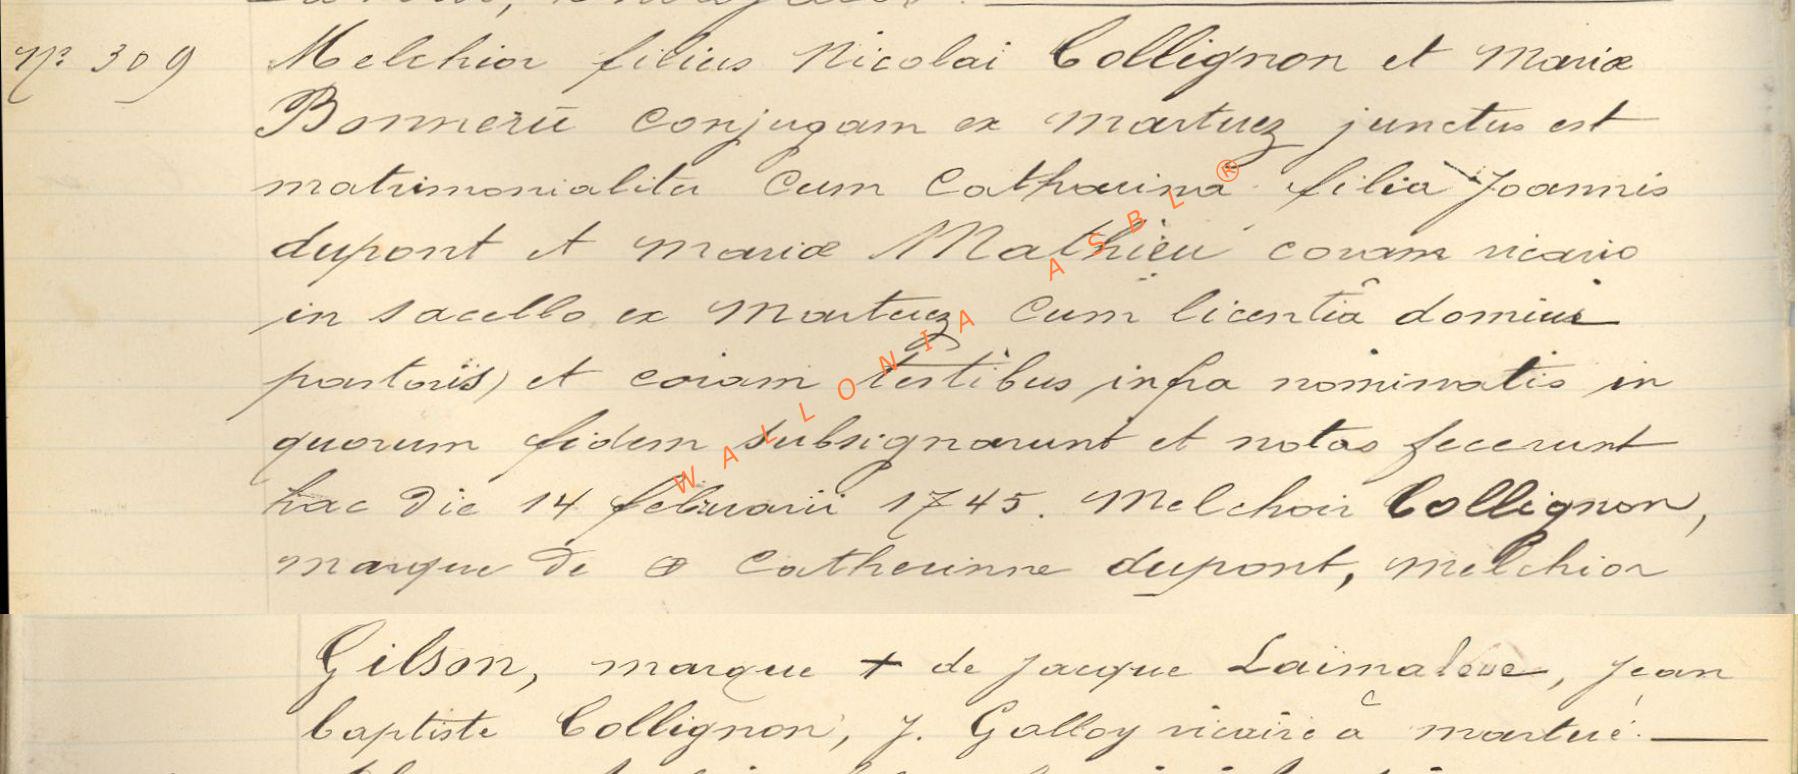 N° 309 Melchior filius Nicolai Collignon et Mariæ
Bonnerŭ conjugam ex Martuez junctus est
matrimonialiter Cum Catharina filia Joannis
dupont et Mariæ Mathieu coram vicario
in sacello ex Martuez Cum licentiâ domini
pastoris) et coram testibus infra nominatis in
quorum fidem subsignarunt et notas fecerunt
hac Die 14 februarii 1745. Melchoir Collignon,
marque De Catherinne dupont, Melchior
Gilson, marque + de Jacque Laimaleue, Jean
baptiste Collignon, J. Galloy vicaire à martué.
WALLONIA ASBL ®